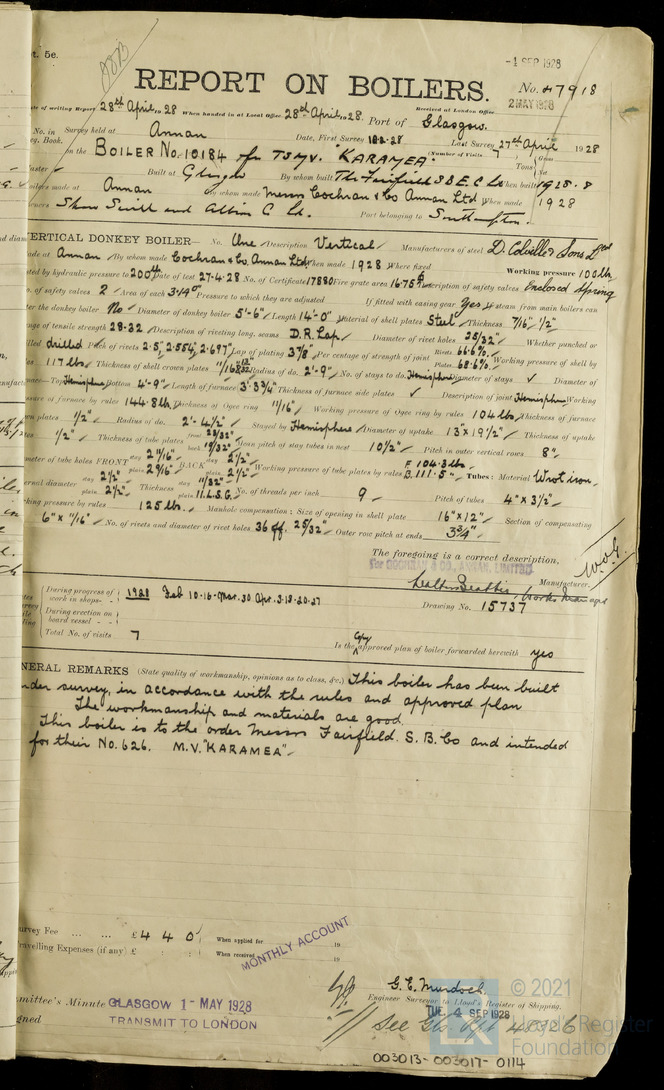 t. 5e.
-4 SEP 1928
REPORT ON BOILERS.
No. 47918
2 MAY 1928
Received at London Office
of writing Report 28th April 1928 When handed in at Local Office 28th April 1928 Port of Glasgow.
No. in Survey held at Annan Date, First Survey 10.2.28 Last Survey 27th April 1928
Book. (Number of Visits 7)
on the BOILER No. 10184 for TSMV. "KARAMEA" Tons
Built at Glasgow By whom built The Fairfield S B E. C Ld When built 1928.8
Boilers made at Annan By whom made Messrs Cochran & Co Annan Ltd When made 1928
Shaw Savill and Albion C Ld. Port belonging to Southampton.
VERTICAL DONKEY BOILER— No. One Description Vertical Manufacturers of steel D. Colville & Sons Ltd
at Annan By whom made Cochran & Co Annan Ltd When made 1928 Where fixed Working pressure 100 lb
by hydraulic pressure to 200 lb Date of test 27-4-28 No. of Certificate 17880 Fire grate area 16.75 Description of safety valves Enclosed Spring
of safety valves 2 Area of each 3.14 Pressure to which they are adjusted If fitted with easing gear Yes If steam from main boilers can
the donkey boiler No Diameter of donkey boiler 5'-6" Length 14'-0" Material of shell plates Steel Thickness 7/16"-1/2"
of tensile strength 28-32 Description of riveting long. seams D.R. Lap Diameter of rivet holes 25/32" Whether punched or
drilled Pitch of rivets 2.5", 2.554, 2.697" Lap of plating 3 7/8" Per centage of strength of joint Rivets 66.6% Plates 68.6% Working pressure of shell by
117 lbs Thickness of shell crown plates 11/16" Radius 2'-9" No. of stays to do. Hemisphere Diameter of stays ✓ Diameter of
Top Hemisphere Bottom 4'-9" Length of furnace 3'-3 3/4" Thickness of furnace side plates ✓ Description of joint Hemisphere Working
pressure of furnace by rules 144.8 lb Thickness of Ogee ring 11/16" Working pressure of Ogee ring by rules 104 lbs Thickness of furnace
plates 1/2" Radius of do. 2'-4 1/2" Stayed by Hemisphere Diameter of uptake 13" x 19 1/2" Thickness of uptake
1/2" Thickness of tube plates front 23/32" back 19/32" Mean pitch of stay tubes in nest 10 1/2" Pitch in outer vertical rows 8"
of tube holes FRONT stay 2 11/16" plain 2 9/16" BACK stay 2 1/2" plain 2 1/2" Working pressure of tube plates by rules F. 104.3 lbs B. 111.5" Tubes: Material Wrot iron
diameter stay 2 1/2" plain 2 1/2" Thickness stay 11/32" plain 11.L.S.G. No. of threads per inch 9 Pitch of tubes 4" x 3 1/2"
pressure by rules 125 lbs. Manhole compensation: Size of opening in shell plate 16" x 12" Section of compensating
6" x 11/16" No. of rivets and diameter of rivet holes 36 off. 25/32" Outer row pitch at ends 3 3/4"
The foregoing is a correct description,
For COCHRAN & CO., ANNAN, LIMITED
Works Manager Manufacturer.
During progress of work in shops - - 1928 Feb 10-16-Mar. 30 Apr. 3.13.20.27 Drawing No. 15737
During erection on board vessel - - -
Total No. of visits 7
Is the Copy approved plan of boiler forwarded herewith yes
GENERAL REMARKS (State quality of workmanship, opinions as to class, &c.) This boiler has been built
under survey, in accordance with the rules and approved plan
The workmanship and materials are good.
This boiler is to the order Messrs Fairfield S. B. Co and intended
for their No. 626. M.V. "KARAMEA"
Survey Fee ... ... £ 4 4 0 When applied for 19
Travelling Expenses (if any) £ : : When received 19
MONTHLY ACCOUNT
G. C. Murdoch
Engineer Surveyor to Lloyd's Register of Shipping.
Committee's Minute GLASGOW 1 - MAY 1928
TUE. 4 SEP 1928
TRANSMIT TO LONDON
See Gls. Rpt 48326
© 2021
Lloyd's Register
Foundation
003013-003017-0114